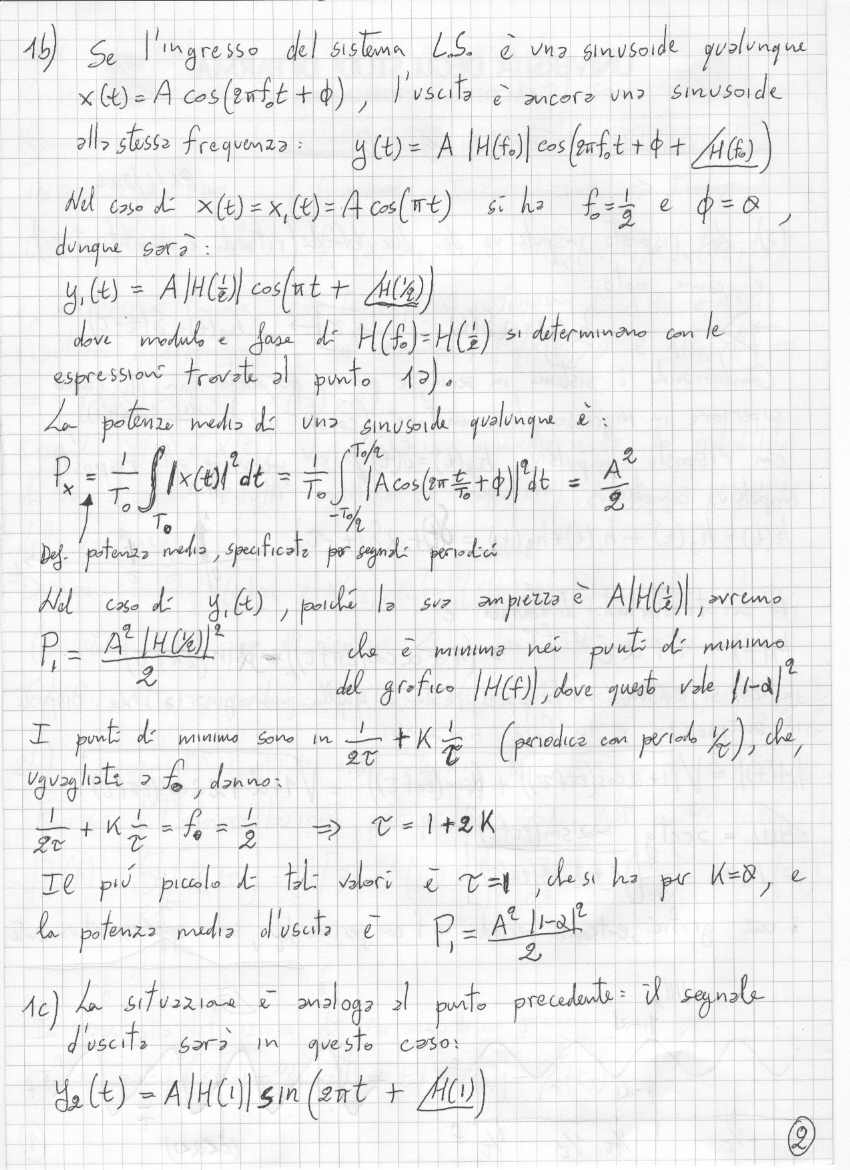 1b) Se l'ingresso del sistema L.S. è una sinusoide qualunque
x(t) = A cos(2πf₀t + ϕ), l'uscita è ancora una sinusoide
alla stessa frequenza: y(t) = A |H(f₀)| cos(2πf₀t + ϕ + ∠H(f₀))
Nel caso di x(t) = x₁(t) = A cos(πt) si ha f₀ = 1/2 e ϕ = 0,
dunque sarà:
y₁(t) = A |H(1/2)| cos(πt + ∠H(1/2))
dove modulo e fase di H(f₀) = H(1/2) si determinano con le
espressioni trovate al punto 1a).
La potenza media di una sinusoide qualunque è:
Pₓ = 1/T₀ ∫_T₀ |x(t)|² dt = 1/T₀ ∫_{-T₀/2}^{T₀/2} |A cos(2π t/T₀ + ϕ)|² dt = A²/2
Def. potenza media, specificata per segnali periodici
Nel caso di y₁(t), poiché la sua ampiezza è A|H(1/2)|, avremo
P₁ = A² |H(1/2)|² / 2 che è minima nei punti di minimo
del grafico |H(f)|, dove questo vale |1-α|²
I punti di minimo sono in 1/2τ + K 1/τ (periodica con periodo 1/τ), che,
uguagliati a f₀, danno:
1/2τ + K 1/τ = f₀ = 1/2 ⇒ τ = 1+2K
Il più piccolo di tali valori è τ=1, che si ha per K=0, e
la potenza media d'uscita è P₁ = A² |1-α|² / 2
1c) La situazione è analoga al punto precedente: il segnale
d'uscita sarà in questo caso:
y₂(t) = A |H(1)| sin(2πt + ∠H(1))
2